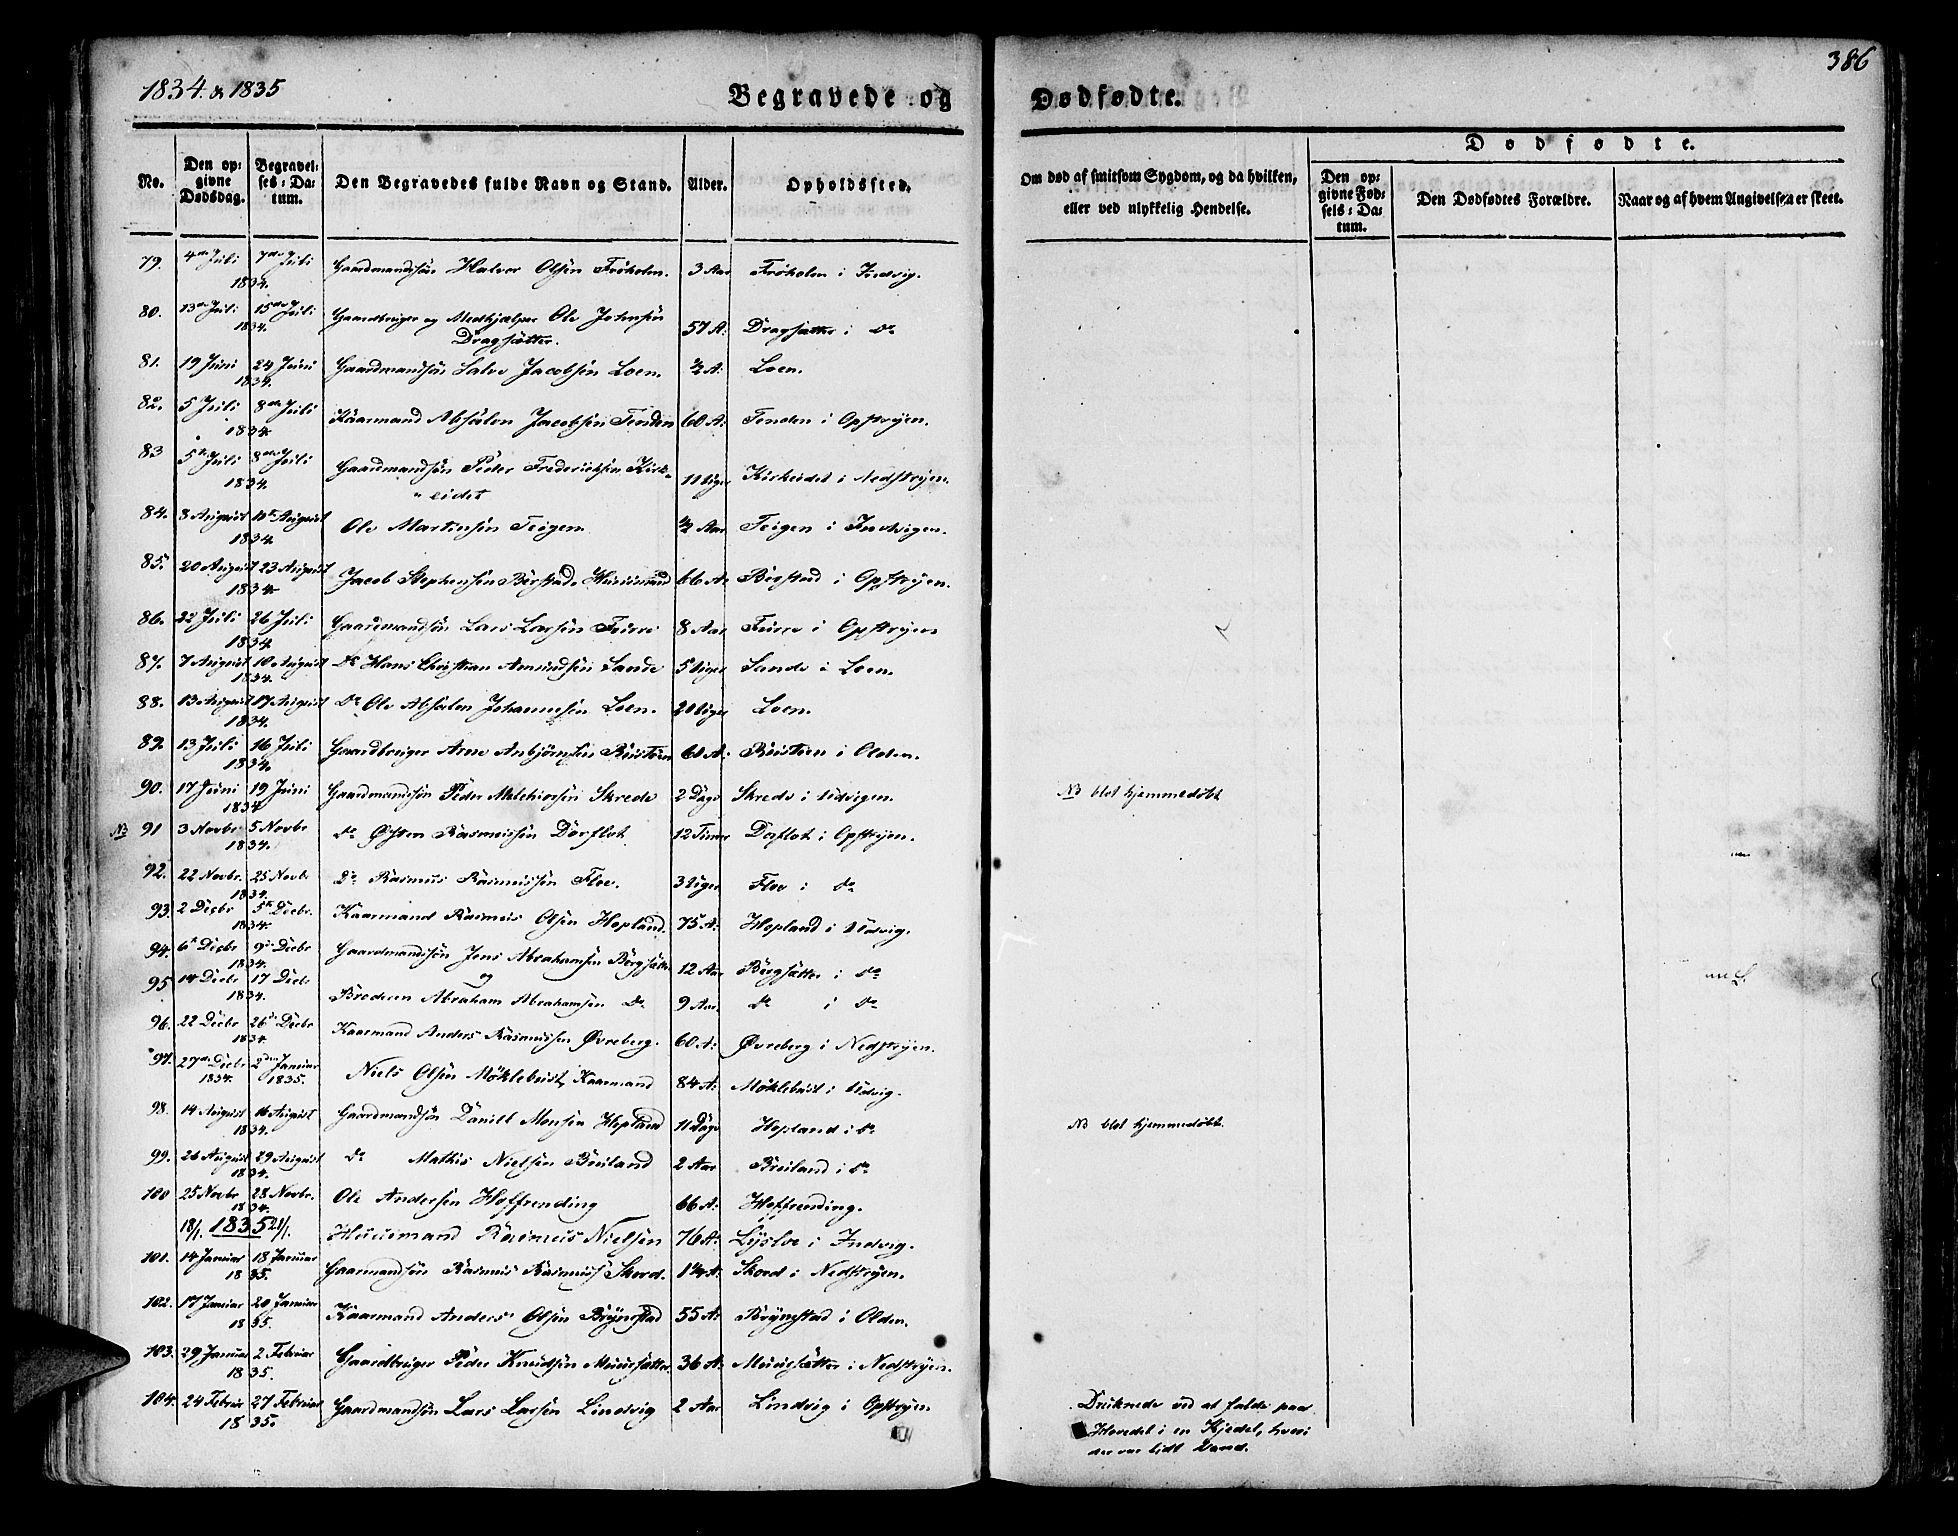 1834 & 1835
Begravede og Dødfødte.
386
No.
Den opgivne Dødsdag.
Begravelses-Datum.
Den Begravedes fulde Navn og Stand.
Alder.
Opholdssted.
Om død af smitsom Sygdom, og da hvilken, eller ved ulykkelig Hendelse.
Dødfødte.
Den opgivne Fødsels-Datum.
Den Dødfødtes Forældre.
Naar og af hvem Angivelsen er skeet.
79. 4de Juli 7de Juli 1834. Gaardmandsön Halvor Olsön Fröholm. 3 Aar Fröholm i Indvig.
80. 13de Juli 15de Juli 1834. Gaardbruger og Medhjælper Ole Johnsön Dragsætter. 57 A: Dragsætter i do
81. 19 Juni 24 Juni 1834. Gaardmandsön Salve Jacobsön Loen. ½ A: Loen.
82. 5 Juli 8de Juli 1834. Kaarmand Absalon Jacobsön Tenden 60 A: Tenden i Opstryen.
83 5te Juli 8de Juli 1834. Gaardmandsön Peder Fredericksön Kirkeidet 11 Uger Kirkeidet i Nedstryen.
84. 8 August 10de August 1834. Ole Martinsön Teigen. Aar Teigen i Indvigen.
85. 20 August 23 August 1834. Jacob Stephensön Berstad Huusmand 66 A: Berstad i Opstryen.
86. 22 Juli 26 Juli 1834. Gaardmandsön Lars Larsön Furre 8 Aar Furre i Opstryen
87. 7 August 10 August 1834. Do Hans Christian Amundsön Sande 5 Uger Sande i Loen.
88. 13 August 17 August 1834. Do Ole Absalon Johannesön Loen. 20 Uger Loen.
89. 13 Juli 16 Juli 1834. Gaardbruger Arne Anbjörnsön Rustöen 61 A: Rustöen i Olden.
90. 17 Juni 19 Juni 1834 Gaardmandsön Peder Melchiorsön Skrede 2 Dage Skrede i Udvigen. NB blot hjemmedöbt
NB 91 3 Novbr 5 Novbr 1834. do Östen Rasmusön Dorflot. 12 Timer Dorflot i Opstryen.
92. 22 Novbr. 25 Novbr 1834. Do Rasmus Rasmusön Floe. 3 Uger Floe i do
93. 2 Decbr 5te Decbr. 1834. Kaarmand Rasmus Olsön Hopland. 75 A: Hopland i Udvig.
94. 6te Decbr 9de Decbr 1834. Gaardmandsön Jens Abrahamsön Bergsætter 12 Aar Bergsætter i do
og
95 14 Decbr 17 Decbr 1834. Broderen Abraham Abrahamsön Do. 9 Aar. do i do
96. 22 Decbr 26de Decbr 1834. Kaarmand Anders Rasmusön Øvreberg. 60 A: Øvreberg i Nedstryen.
97. 27de Decbr 1834. 2den Januar 1835. Niels Olsön Möklebust, Kaarmand 84 A: Möklebust i Udvig.
98. 14 August 16 August 1834. Gaardmandsön Daniel Monsön Hopland 11 Dage Hopland i do NB blot hjemmedöbt.
99. 26 August 29 August 1834. do Mathis Nielsön Bruland 2 Aar Bruland i do
100 25 Novbr 28 Novbr. 1834. Ole Andersön Hoffrending 66 A: Hoffrending.
18/1. 1835 21/1. Huusmand Rasmus Nielsön 76 A: Lysloe i Indvig.
101. 14 Januar 18 Januar 1835. Gaarmandsön Rasmus Rasmuss. Skord. 1¼ A: Skord i Nedstryen.
102. 17 Januar 20 Januar 1835. Kaarmand Anders Olsön Brynestad 55 A: Brynestad i Olden.
103. 29 Januar 2 Februar 1835. Gaardbruger Peder Knudsön Muusætter 36 A: Muusætter i Nedstryen.
104. 24 Februar 27 Februar 1835. Gaardmandsön Lars Larsön Lindvig 2 Aar Lindvig i Opstryen
Druknede ved at falde paa
Hovedet i en Kjedel, hvori
der var lidt Vand.